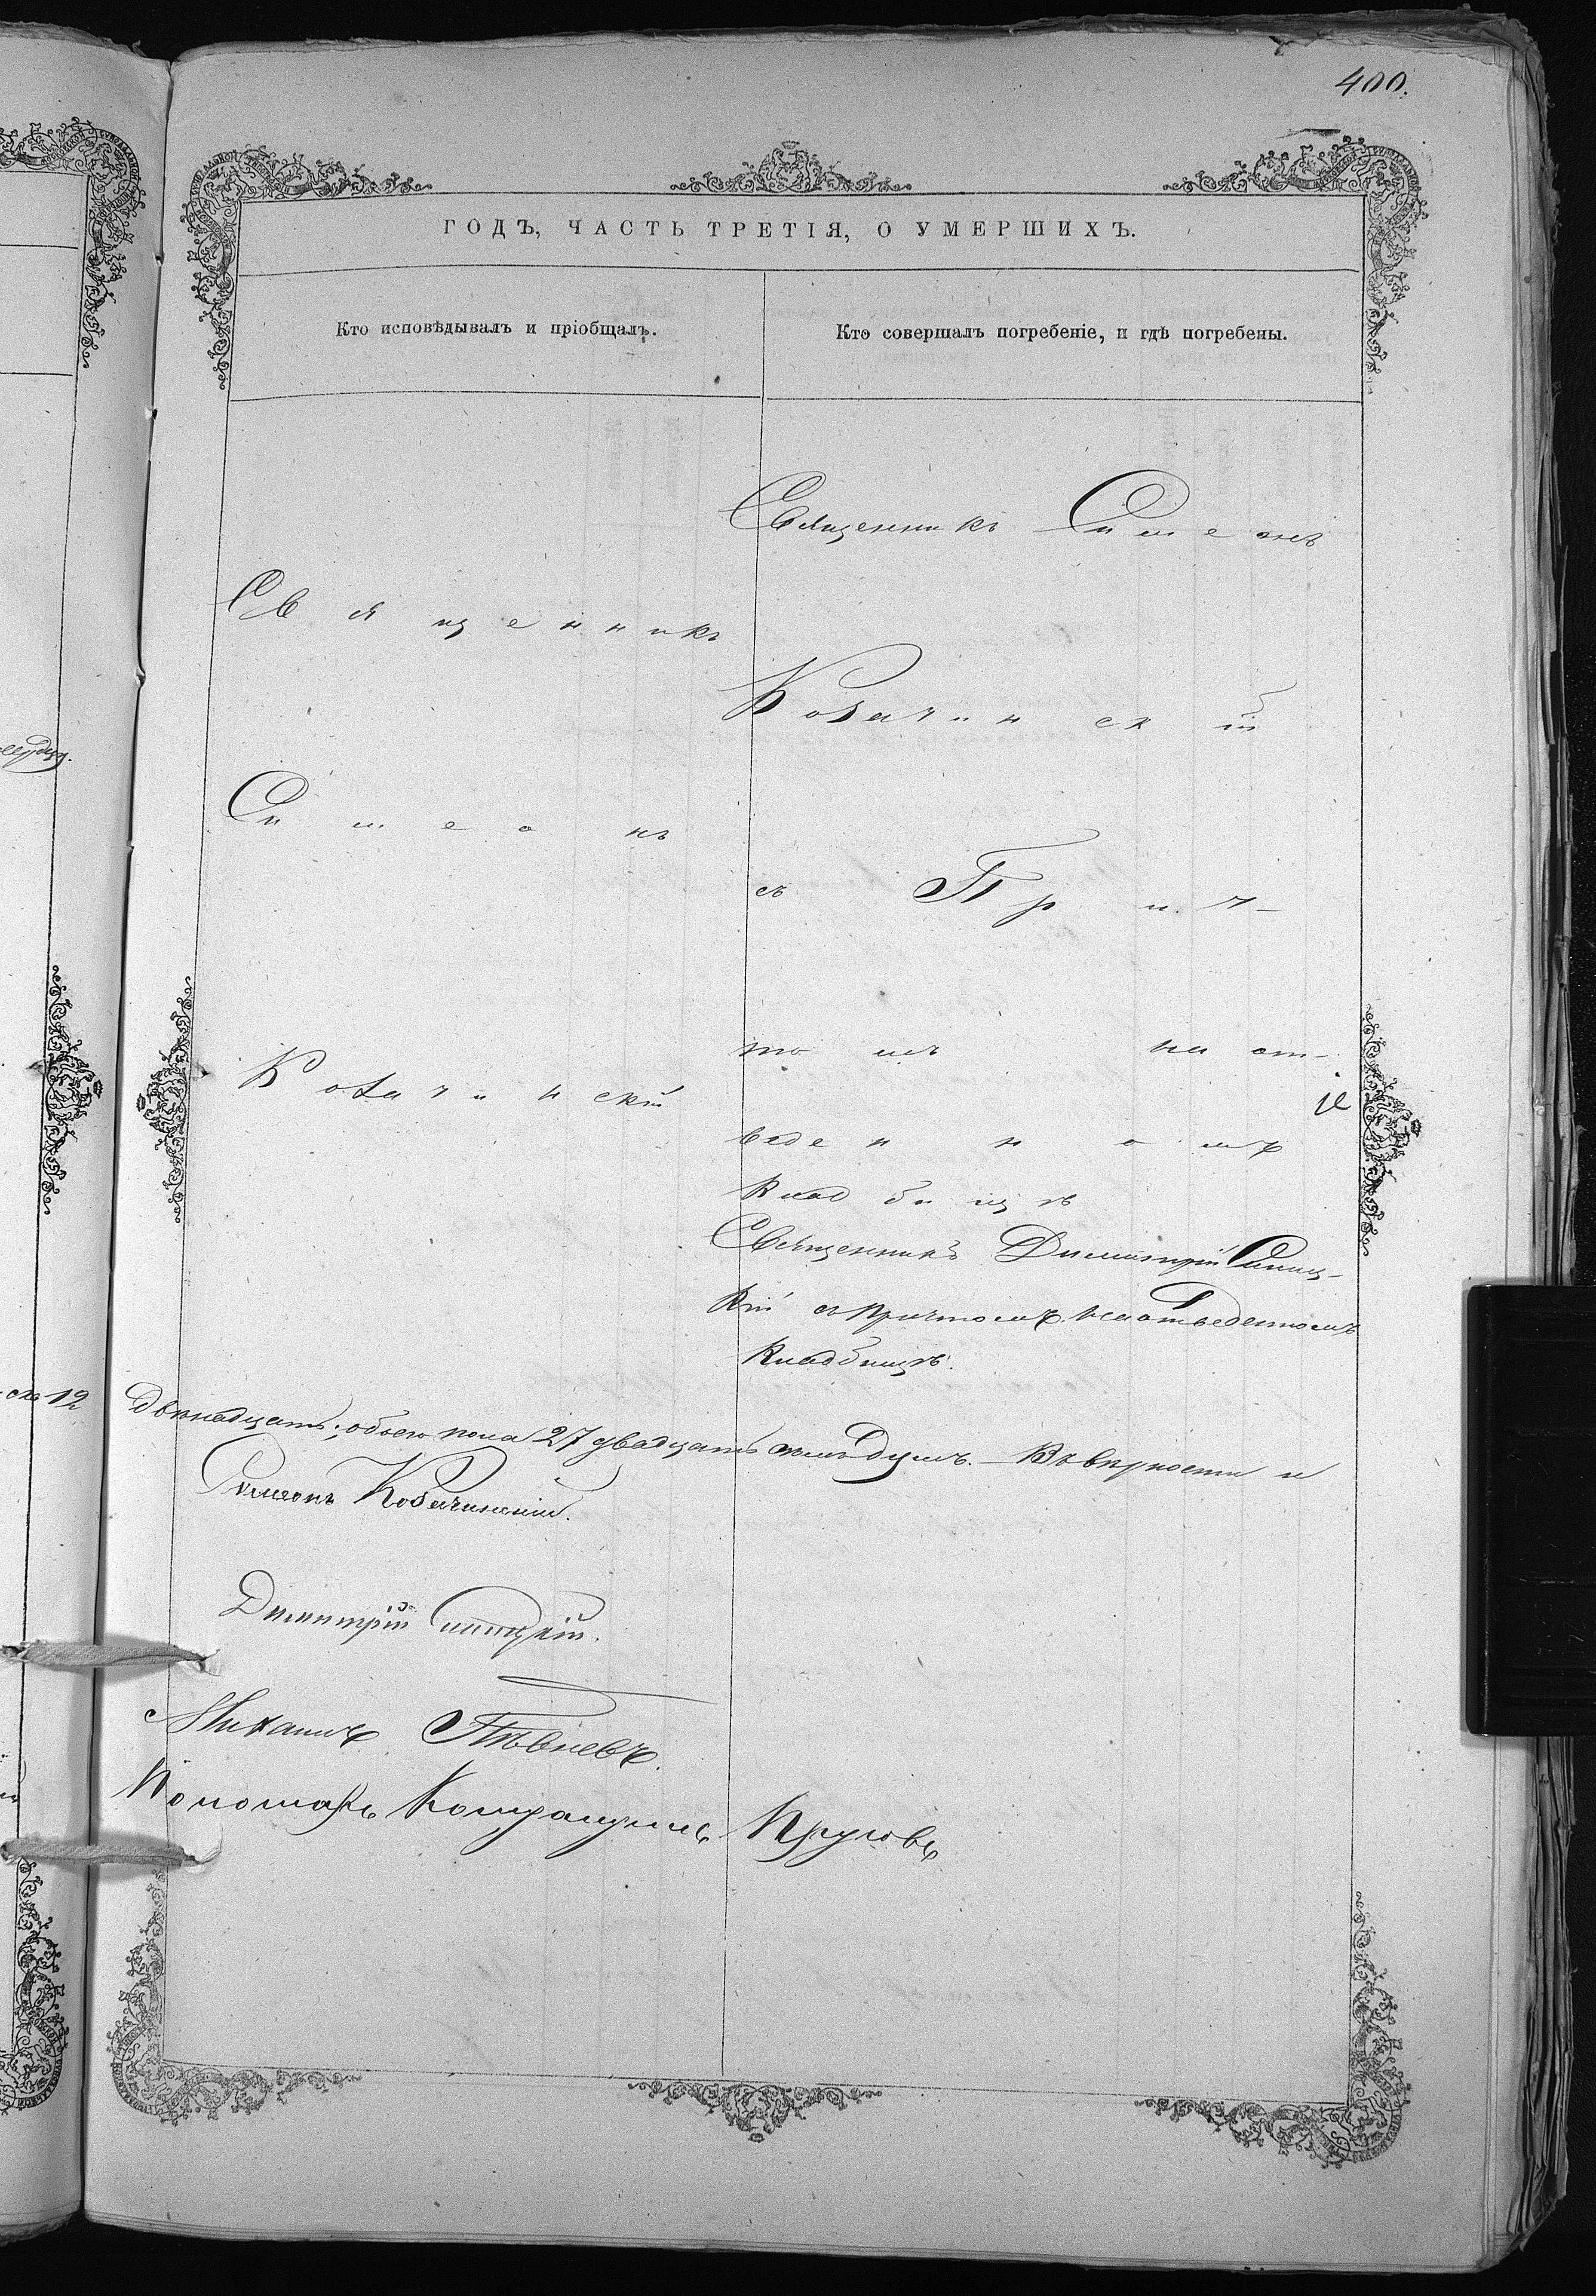 400.
ГОДЪ, ЧАСТЬ ТРЕТІЯ, О УМЕРШИХЪ.
Кто исповѣдывалъ и пріобщалъ.
Кто совершалъ погребеніе, и гдѣ погребены.
Священникъ
Симеонъ
Кобачинскій
Священникъ Симеонъ
Кобачинскій
съ Прич-
томъ на от-
веденномъ
кладбищѣ
Священникъ Димитрій Синиц-
кій съ причтомъ на отведенномъ
кладбищѣ.
12
двѣнадцать; обоего пола 27 двадцать семь душъ. — Въ вѣрности и
Симеонъ Кобачинскій.
Димитрій Синицкій.
Михаилъ Пѣвневъ.
Пономарь Круговъ